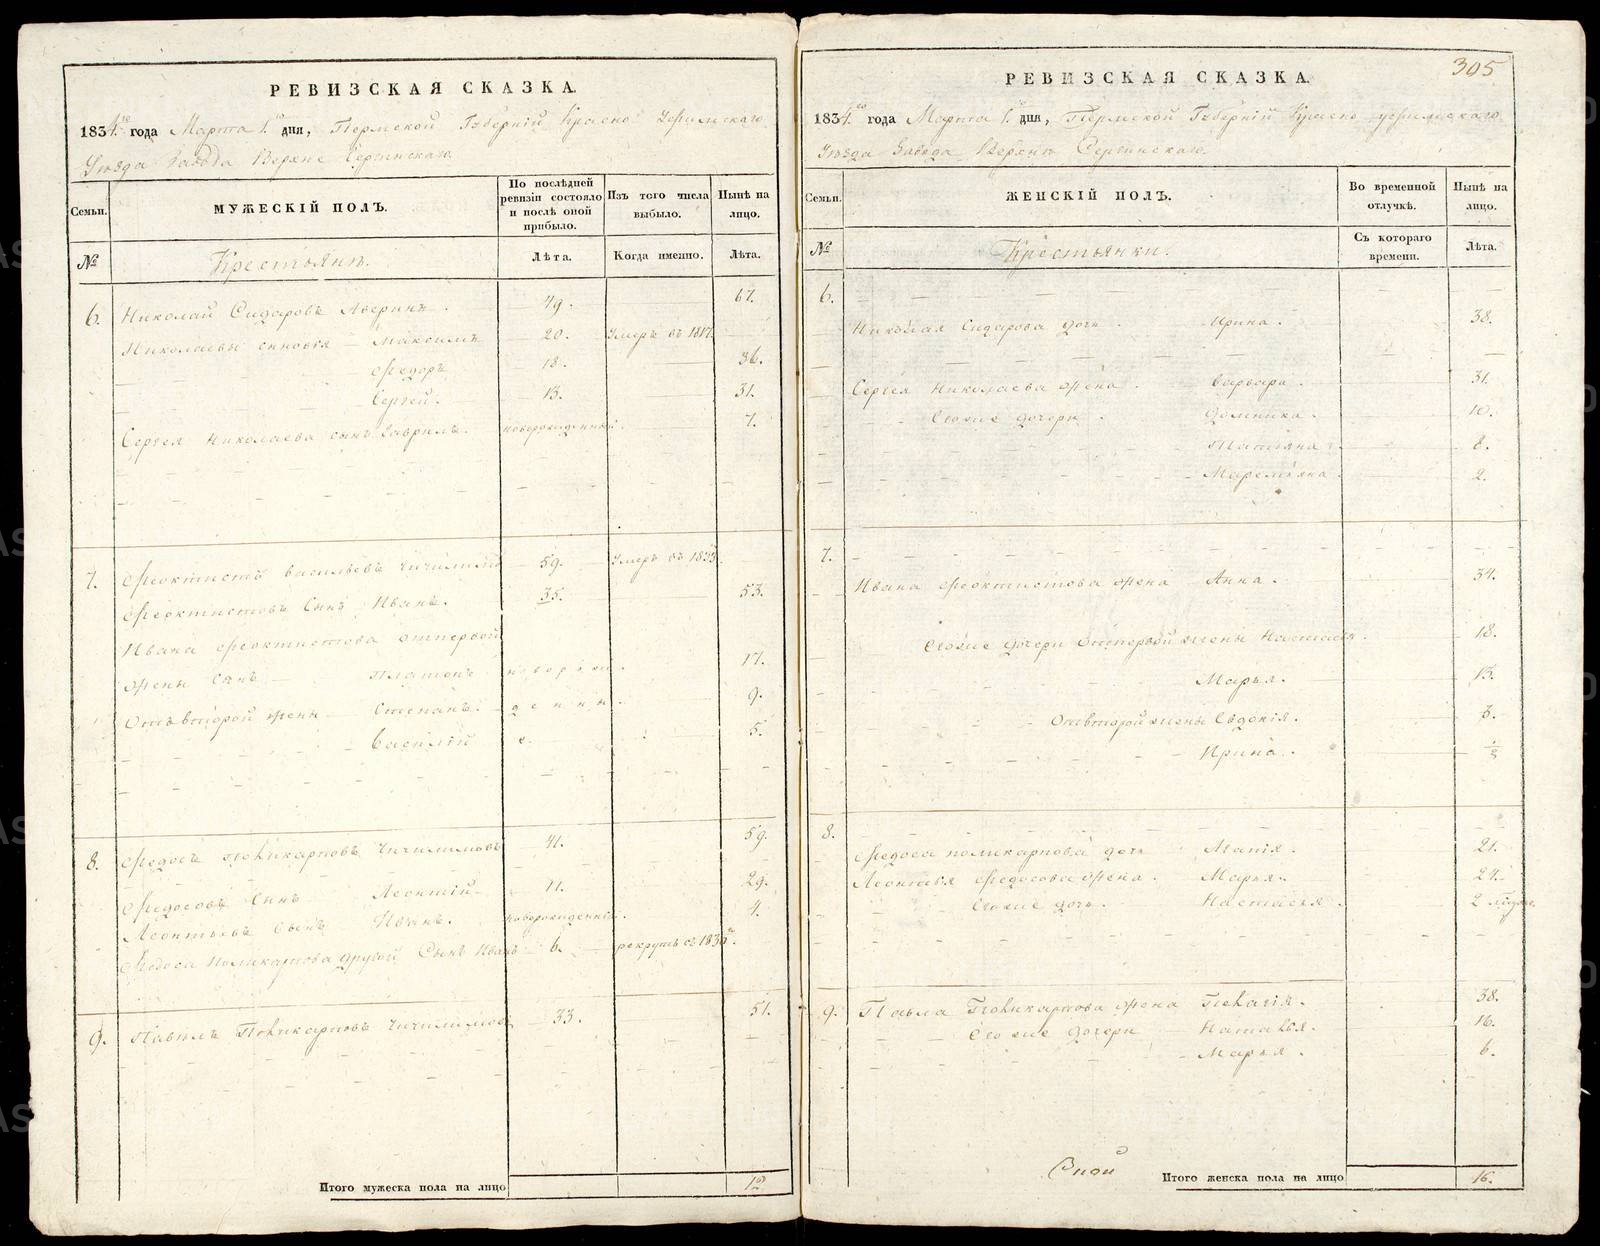 РЕВИЗСКАЯ СКАЗКА.
1834го года Марта 1го дня, Пермской Губернiй Красно Уфимскаго
Уѣзда Завода Верхне Сергинскаго
Семьи.
МУЖЕСКІЙ ПОЛЪ.
По послѣдней ревизіи состояло и послѣ оной прибыло.
Изъ того числа выбыло.
Нынѣ на лицо.
№
Крестьянѣ.
Лѣта.
Когда именно.
Лѣта.
6. Николай Сидоровъ Аверинъ. 49. 67.
Николаевы сыновья Максимъ 20. Умеръ въ 1817.
Федоръ 18. 36.
Сергей. 13. 31.
Сергея Николаева сынъ Гаврилъ. новорожденный. 7.
7. Феоктистъ Васильевъ 59. Умеръ въ 1833.
Феоктистовъ Сынъ Иванъ. 35. 53.
Ивана Феоктистова отпервой
жены Сынъ Платонъ новорож 17.
Отъ второй жены Степанъ. денны 9.
Василій е. 5.
8. Федосъ Поликарповъ 41. 59.
Федосовъ Сынъ Леонтій 11. 29.
Леонтьевъ Сынъ Иванъ. новорожденный. 4.
Федоса Поликарпова другой Сынъ Иванъ 6. рекрутъ съ
9. Павелъ Поликарповъ 33. 51.
Итого мужеска пола на лицо 12
305
РЕВИЗСКАЯ СКАЗКА.
1834го года Марта 1го дня, Пермской Губернiй Красно уфимскаго
Уѣзда Завода Верхне Сергинскаго.
Семьи.
ЖЕНСКІЙ ПОЛЪ.
Во временной отлучкѣ.
Нынѣ на лицо.
№
Крестьянки.
Съ котораго времени.
Лѣта.
6.
Николая Сидорова дочь Ирина. 38.
Сергея Николаева жена. Варвара. 31.
Его же дочери Домника. 10.
Татьяна 8.
Маремьяна 2.
7.
Ивана Феоктистова жена Анна. 34.
Его же дочери Отпервой жены Настасья. 18.
Марья. 13.
Отвторой жены Евдокія. 3.
Ирина.
8.
Федоса поликарпова дочь 21.
Леонтья Федосова жена. Марья. 24.
Его же дочь. Настасья. 2
9. Павла Поликарпова жена Пелагія. 38.
Его же дочери Наталья. 16.
Марья. 6.
Итого женска пола на лицо 16.